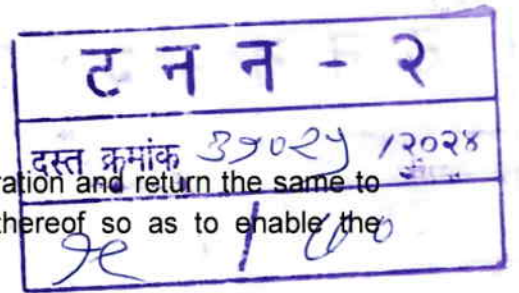 ट न न - २
दस्त क्रमांक ३१०२५ /२०२४
ration and return the same to
thereof so as to enable the